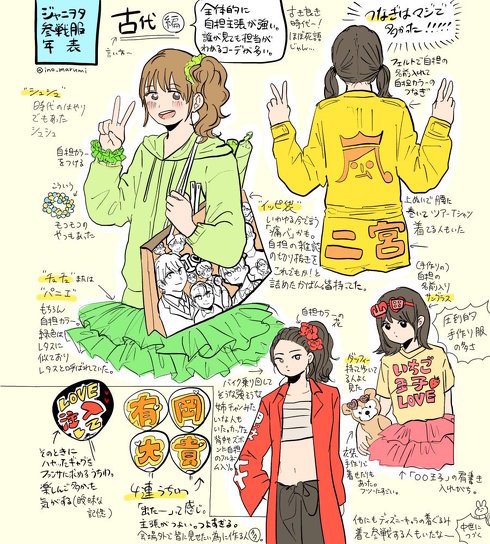 ジャニヲタ
参戦服
年表
@ino_marumi
古代 編
言い方←
全体的に
自担主張が強い。
誰が見ても担当が
わかるコーデが多い。
古き良き
時代〜!
ほぼ死語
じゃん…
つなぎはマジで
多かった!!!!!
フェルトで自担の
名前入れて
自担カラーの
つなぎ
"シュシュ"
時代のはやり
でもあった
シュシュ
自担カラー
をつける
こういう
もこもこの
やつもあった
"イッピ袋"
いわゆる今で言う
「痛バ」かも。
自担の雑誌
の切り抜きを
これでもか!と
詰めたかばん皆持てた。
嵐
二宮
上ぬいで腰に
巻いて、ツアーTシャツ
着てる人もいた
"チュチュ"または
"パニエ"
もちろん
自担カラー。
緑色は
レタスに
似ており
レタスと呼ばれていた。
自担カラー
の花
(手作りの)
自担の
名前入り
サングラス
圧倒的
手作り服
の多さ
いちご
王子
LOVE
ダッフィー
持て歩いてる
人よく
見た
「○○王子」の肩書き
入れがち。
バイク乗り回して
そうな強そうな
姉チャンみた
いな人も
いた。
LOVE
注入
して
そのときに
ハヤったギャグを
ファンサに求めるうちわ、
楽しんご多かた
気がする(曖昧な
記憶)
有岡
大貴
4連うちわ
「出たーっ」て感じ。
主張がつよい。つよすぎる。
会場外で皆に見せたい為に作る人多
他にもディズニーキャラの着ぐるみ
着て参戦する人もいたな〜
中世に
つづく